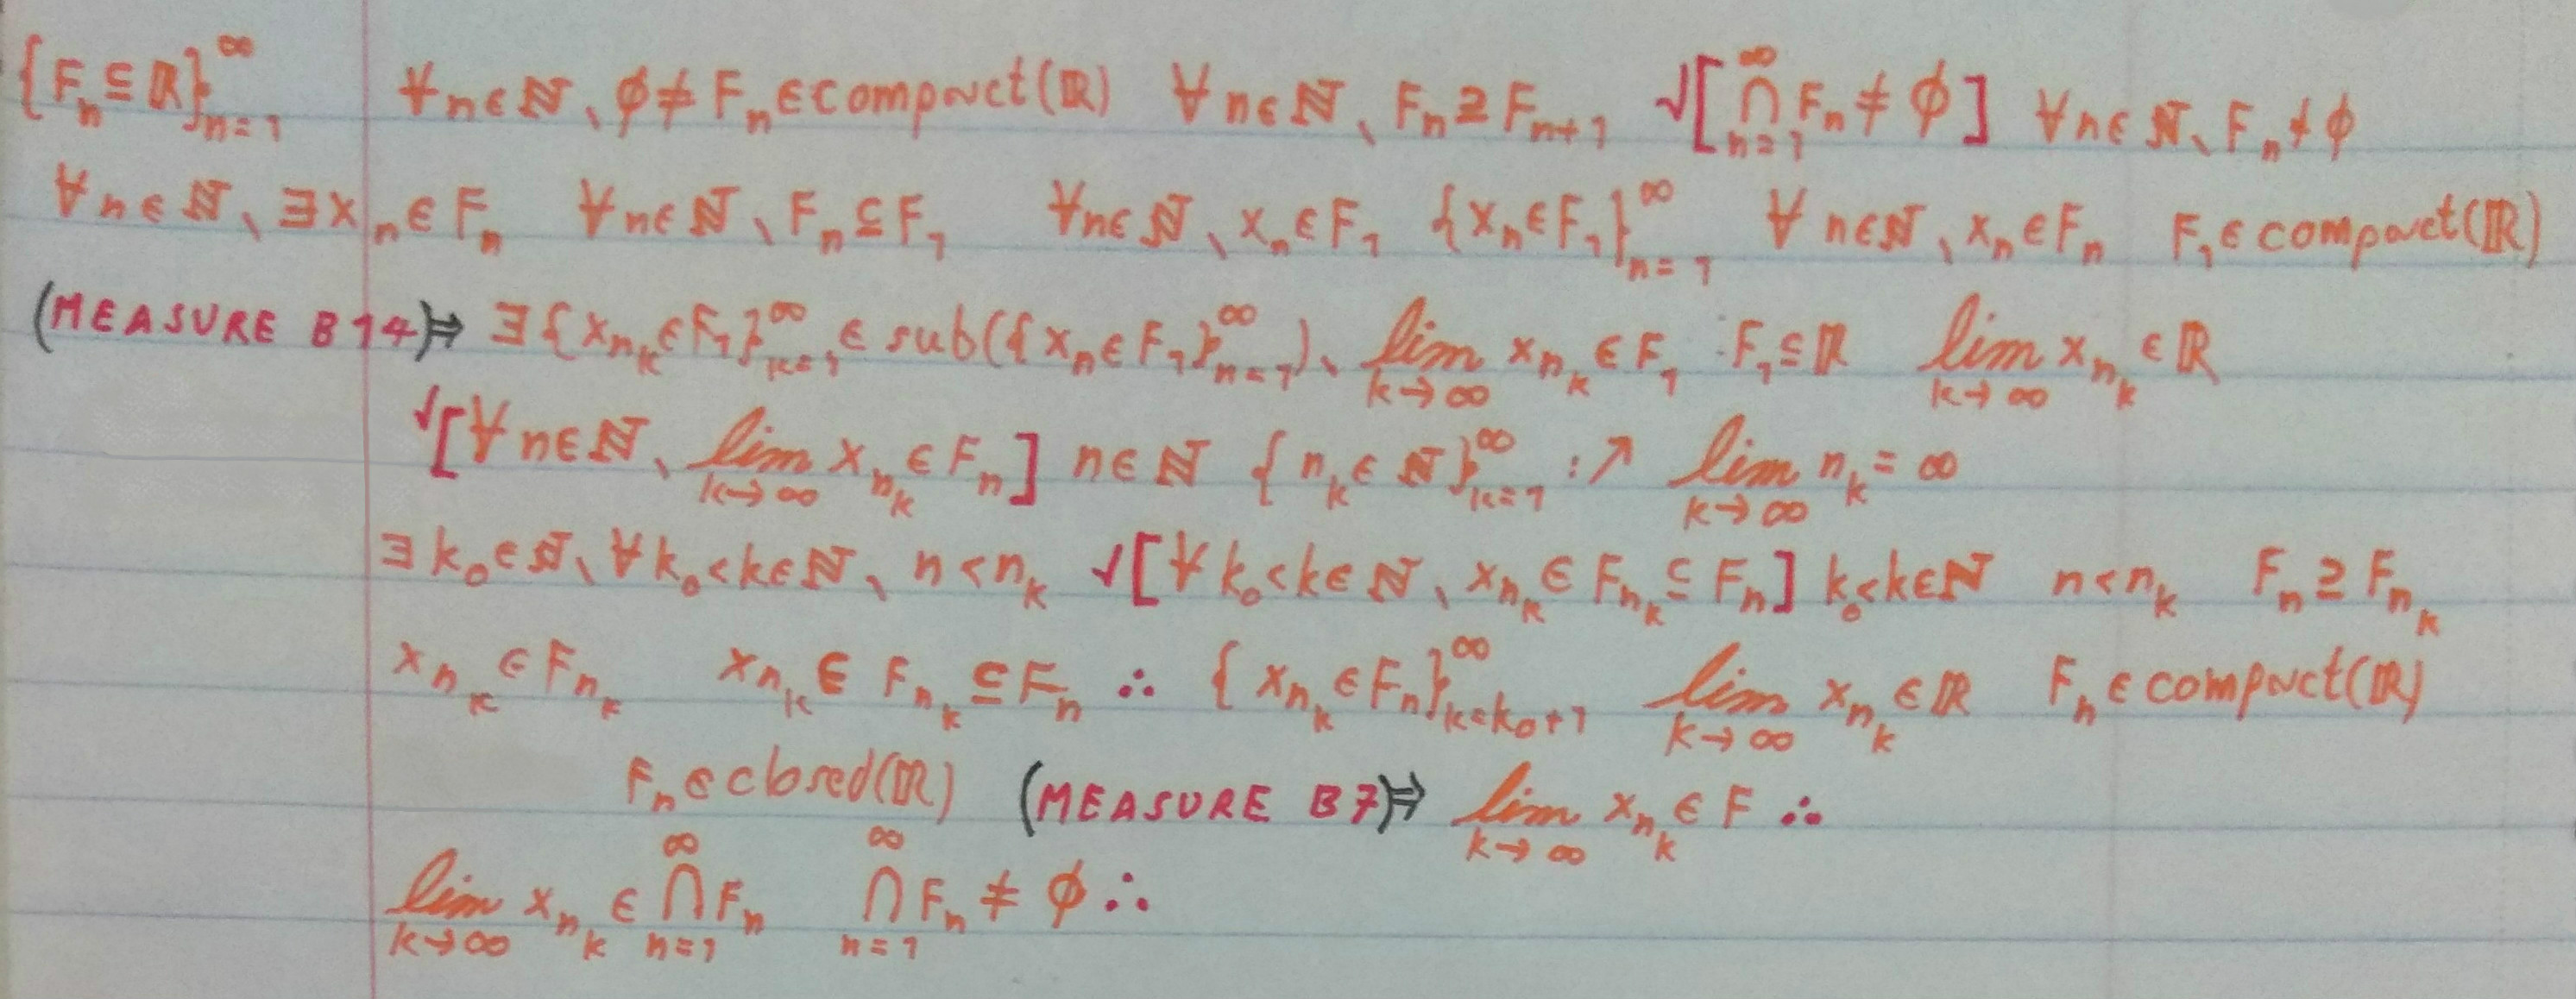 {Fₙ ⊆ ℝ}ₙ₌₁^∞ ∀n∈ℕ、∅≠Fₙ∈compact(ℝ) ∀n∈ℕ、Fₙ⊇Fₙ₊₁ √[⋂ₙ₌₁^∞ Fₙ≠∅] ∀n∈ℕ、Fₙ≠∅
∀n∈ℕ、∃xₙ∈Fₙ ∀n∈ℕ、Fₙ⊆F₁ ∀n∈ℕ、xₙ∈F₁ {xₙ∈F₁}ₙ₌₁^∞ ∀n∈ℕ、xₙ∈Fₙ F₁∈compact(ℝ)
(MEASURE B14)⇒ ∃{x_{n_k}∈F₁}_{k=1}^∞ ∈ sub({xₙ∈F₁}ₙ₌₁^∞)、lim_{k→∞} x_{n_k}∈F₁ F₁⊆ℝ lim_{k→∞} x_{n_k}∈ℝ
√[∀n∈ℕ、lim_{k→∞} x_{n_k}∈Fₙ] n∈ℕ {n_k∈ℕ}_{k=1}^∞ :↗ lim_{k→∞} n_k=∞
∃k₀∈ℕ、∀k₀<k∈ℕ、n<n_k √[∀k₀<k∈ℕ、x_{n_k}∈F_{n_k}⊆Fₙ] k₀<k∈ℕ n<n_k Fₙ⊇F_{n_k}
x_{n_k}∈F_{n_k} x_{n_k}∈F_{n_k}⊆Fₙ ∴ {x_{n_k}∈Fₙ}_{k=k₀+1}^∞ lim_{k→∞} x_{n_k}∈ℝ Fₙ∈compact(ℝ)
Fₙ∈closed(ℝ) (MEASURE B7)⇒ lim_{k→∞} x_{n_k}∈F ∴
lim_{k→∞} x_{n_k}∈⋂ₙ₌₁^∞ Fₙ ⋂ₙ₌₁^∞ Fₙ≠∅ ∴